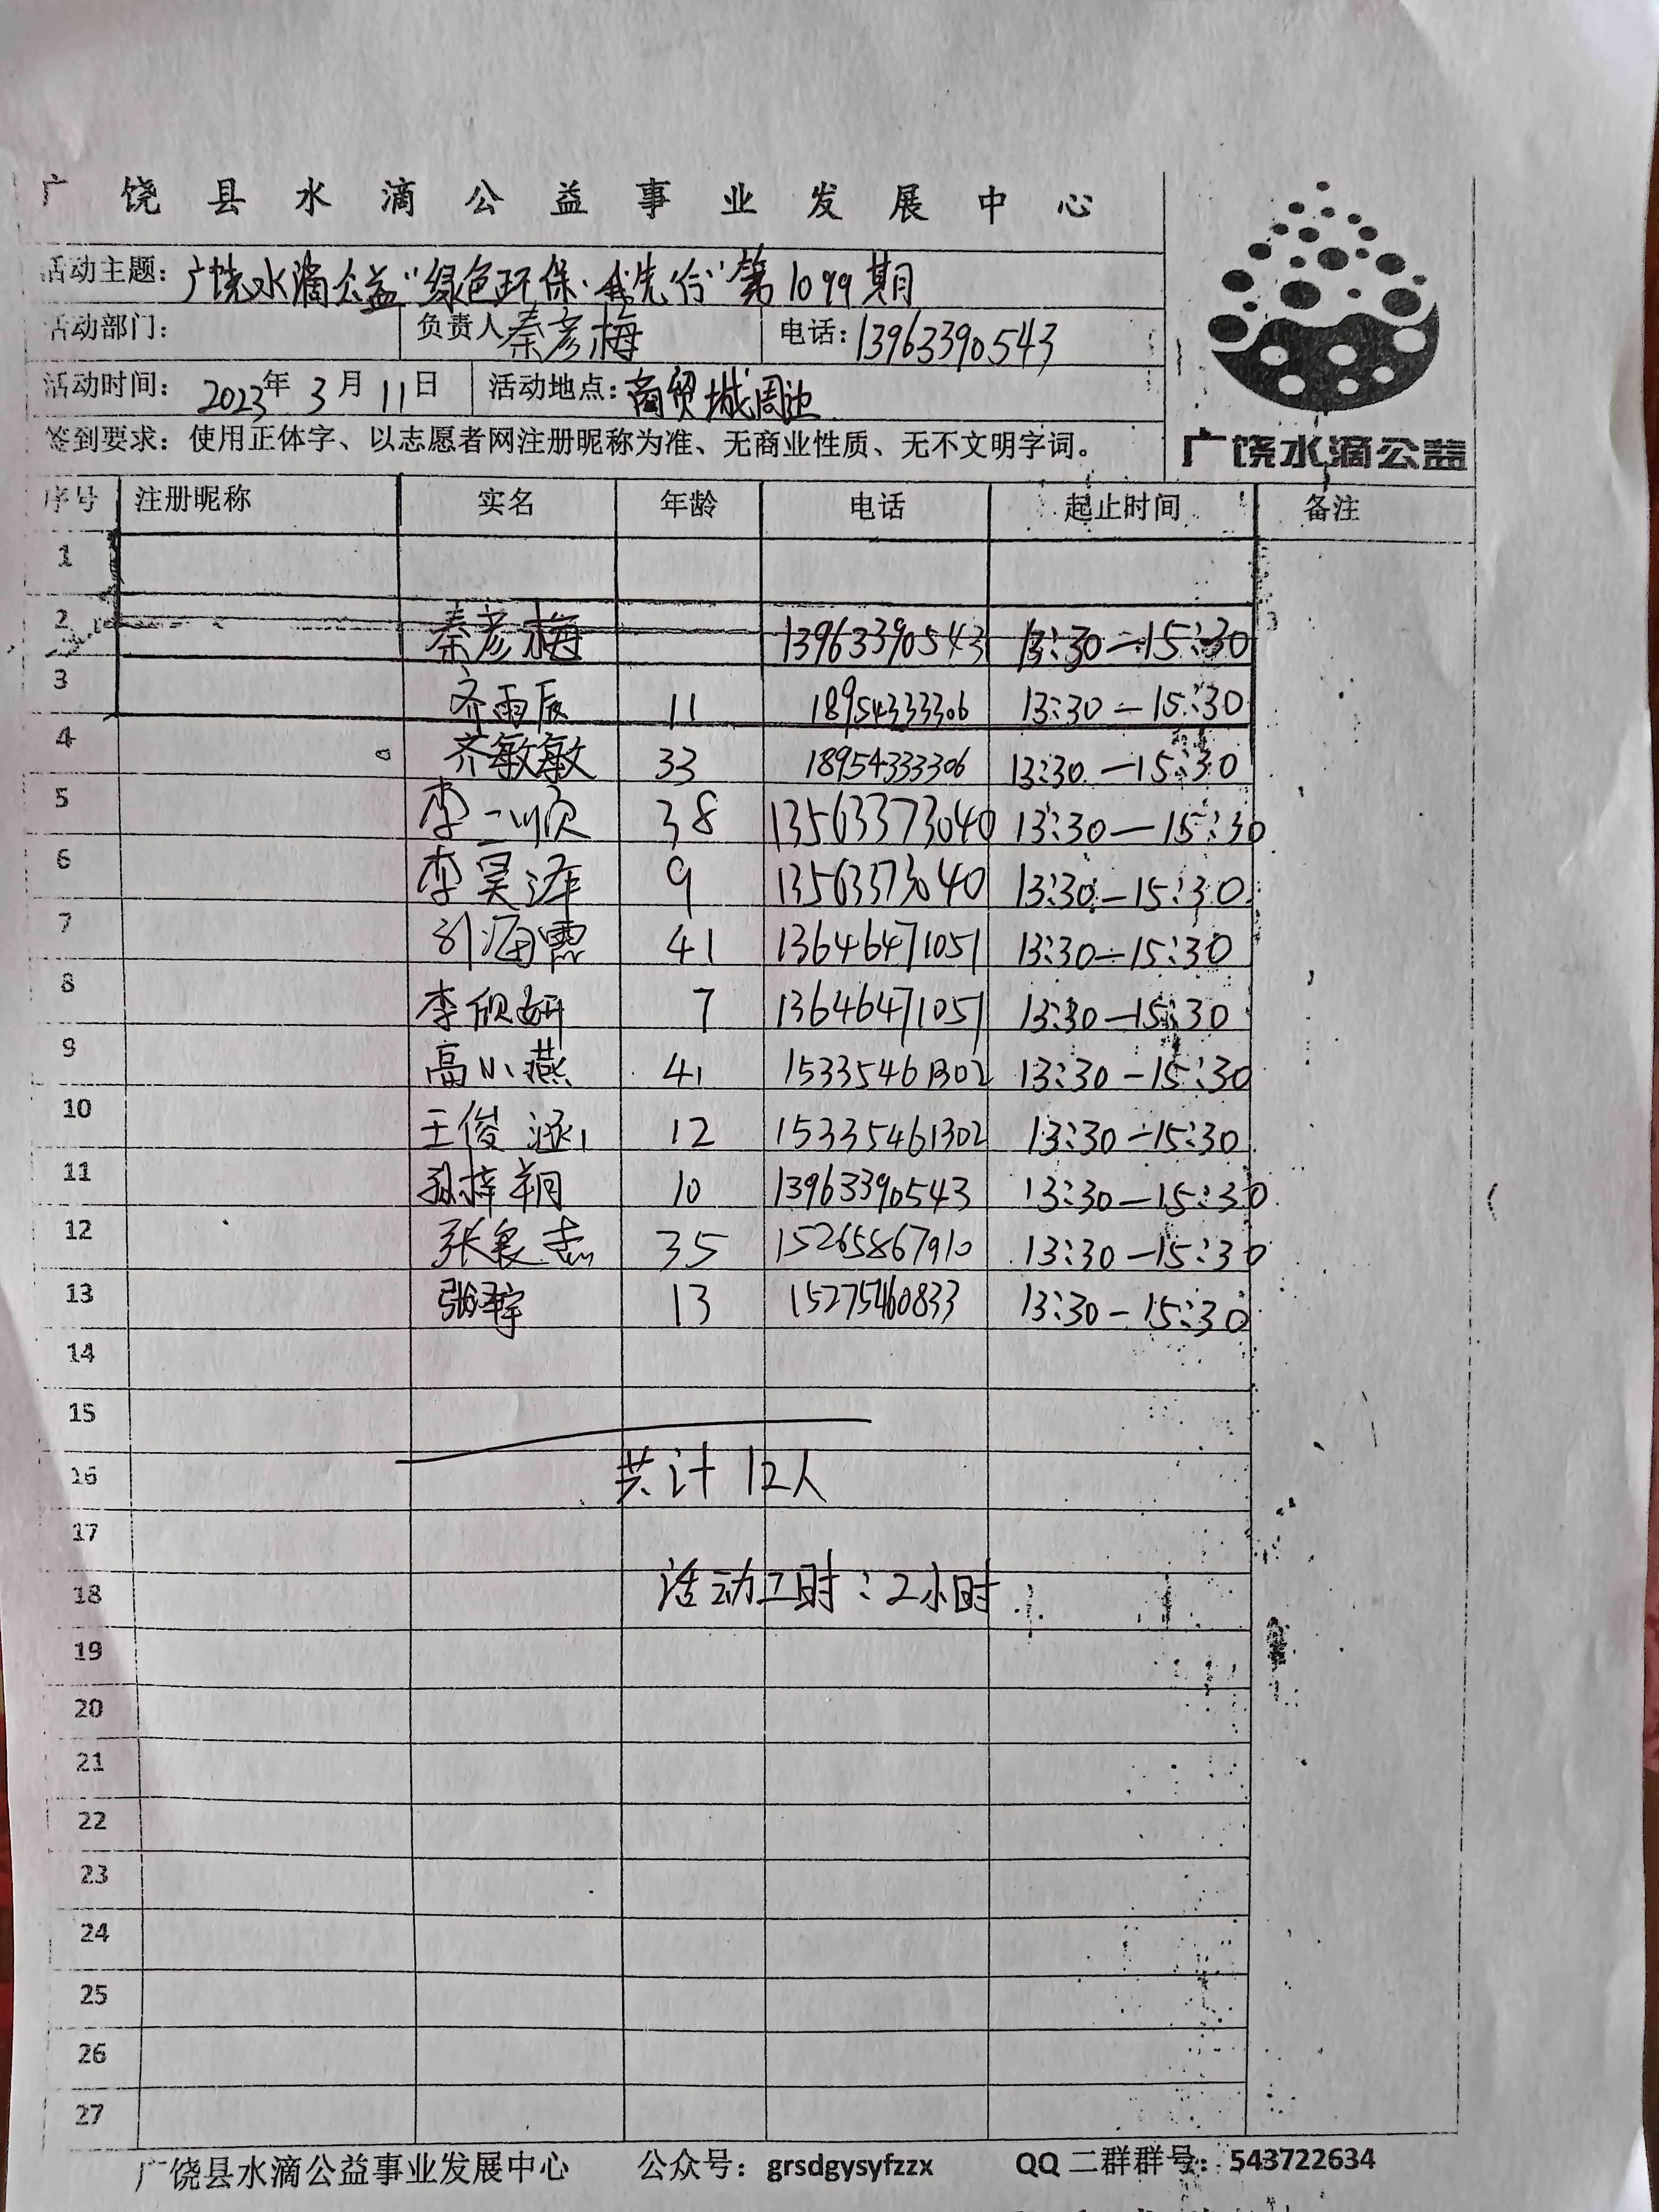 广饶县水滴公益事业发展中心
活动主题：广饶水滴公益“绿色环保·我先行”第1099期
活动部门： 负责人 秦彦梅 电话：13963390543
活动时间： 2023年 3月 11日 活动地点：商贸城周边
签到要求：使用正体字、以志愿者网注册昵称为准、无商业性质、无不文明字词。
广饶水滴公益
序号 注册昵称 实名 年龄 电话 起止时间 备注
1
2 秦彦梅 13963390543 13:30—15:30
3 齐雨辰 11 18954333306 13:30—15:30
4 齐敏敏 33 18954333306 13:30—15:30
5 李二顺 38 13563373040 13:30—15:30
6 李昊泽 9 13563373040 13:30—15:30
7 刘海霞 41 13646471051 13:30—15:30
8 李欣妍 7 13646471051 13:30—15:30
9 高小燕 41 15335461302 13:30—15:30
10 王俊涵 12 15335461302 13:30—15:30
11 孙梓翔 10 13963390543 13:30—15:30
12 张良志 35 15265867910 13:30—15:30
13 张泽宇 13 15275460833 13:30—15:30
14
15
16 共计12人
17
18 活动工时：2小时
19
20
21
22
23
24
25
26
27
广饶县水滴公益事业发展中心 公众号：grsdgysyfzzx QQ二群群号：543722634